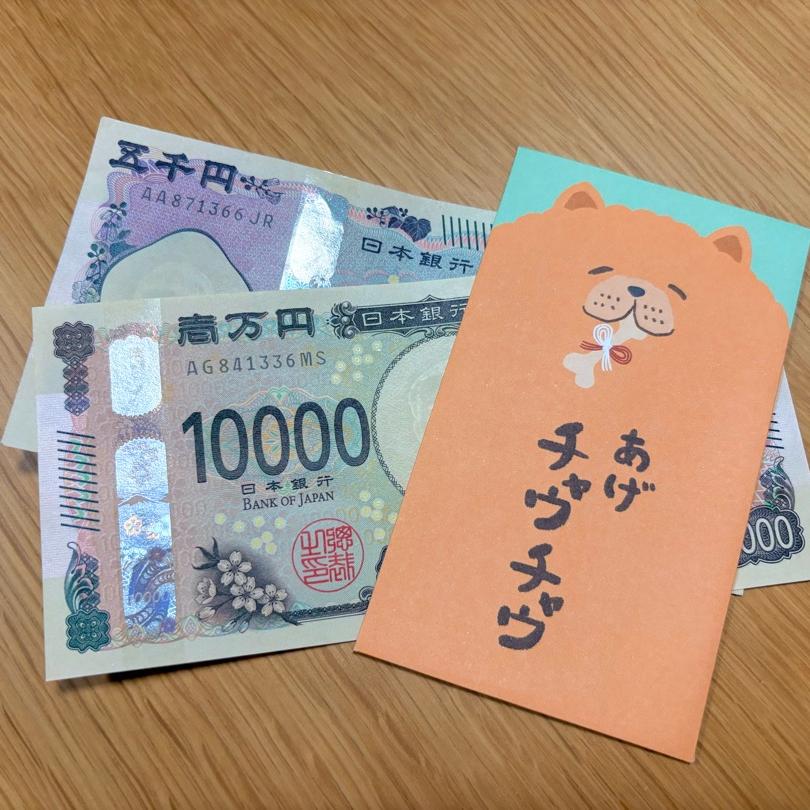 五千円
AA871366JR
日本銀行
壱万円
日本銀行
AG841336MS
10000
日本銀行
BANK OF JAPAN
総裁之印
あげ
チャウチャウ
000